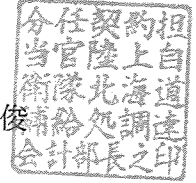 分任契約担
当官陸上自
衛隊北海道
補給処調達
会計部長之印
俊